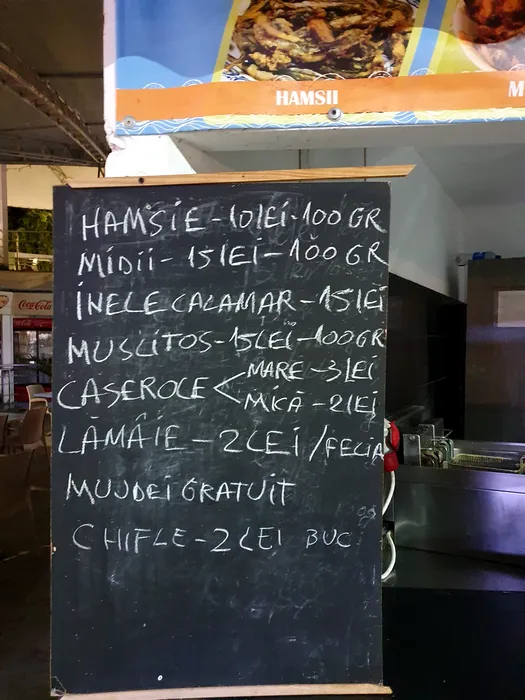 HAMSII
M
HAMSIE - 10 LEI - 100 GR
MIDII - 15 LEI - 100 GR
INELE CALAMAR - 15 LEI
MUSCITOS - 15 LEI - 100 GR
CASEROLE < MARE - 3 LEI
MICĂ - 2 LEI
LĂMÂIE - 2 LEI / FELIA
MUJDEI GRATUIT
CHIFLE - 2 LEI BUC
Coca-Cola